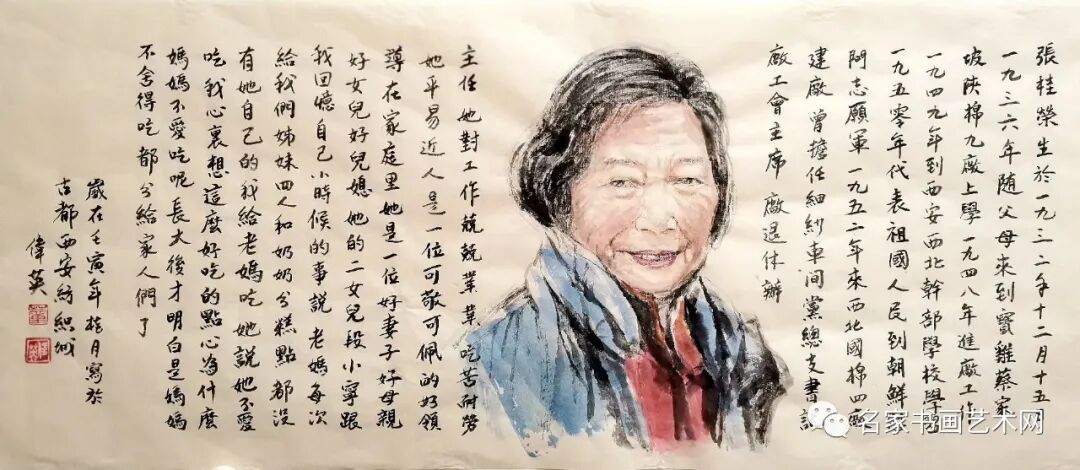 張桂榮生於一九三二年十二月十五日
一九三六年随父母來到寶雞蔡家
坡陝棉九廠上學一九四八年進廠工作
一九四九年到西安西北幹部學校學習
一九五零年代表祖國人民到朝鮮慰
問志願軍一九五二年來西北國棉四廠
建廠曾擔任細紗車間黨總支書記
廠工會主席廠退休辦
主任她對工作兢兢業業吃苦耐勞
她平易近人是一位可敬可佩的好領
導在家庭里她是一位好妻子好母親
好女兒好兒媳她的二女兒段小寧跟
我回憶自己小時候的事說老媽每次
給我們姊妹四人和奶奶分糕點都沒
有她自己的我給老媽吃她說她不愛
吃我心裏想這麼好吃的點心為什麼
媽媽不愛吃呢長大後才明白是媽媽
不舍得吃都分給家人們了
歲在壬寅年桂月寫於
古都西安紡織城
偉英
名家书画艺术网